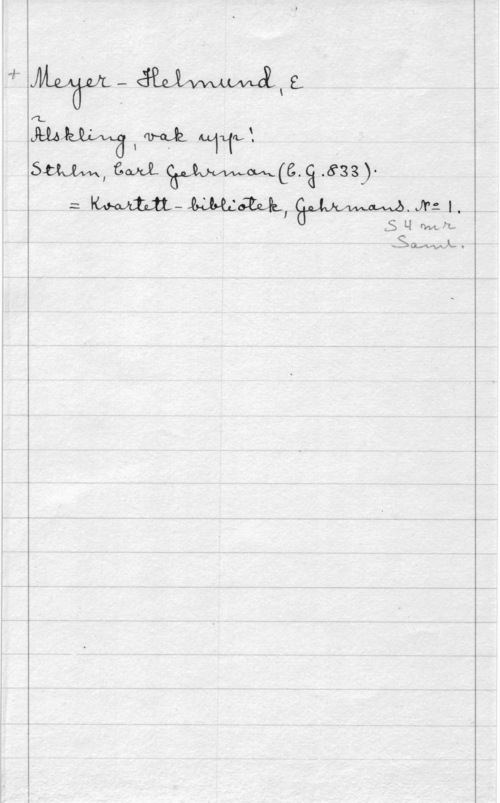 + Meyer-Helmund, E
Älskling, vak upp!
Sthlm, Carl Gehrman (C.G.833).
= Kvartett-bibliotek, Gehrmans. № 1.
S 4 mr
Saml.